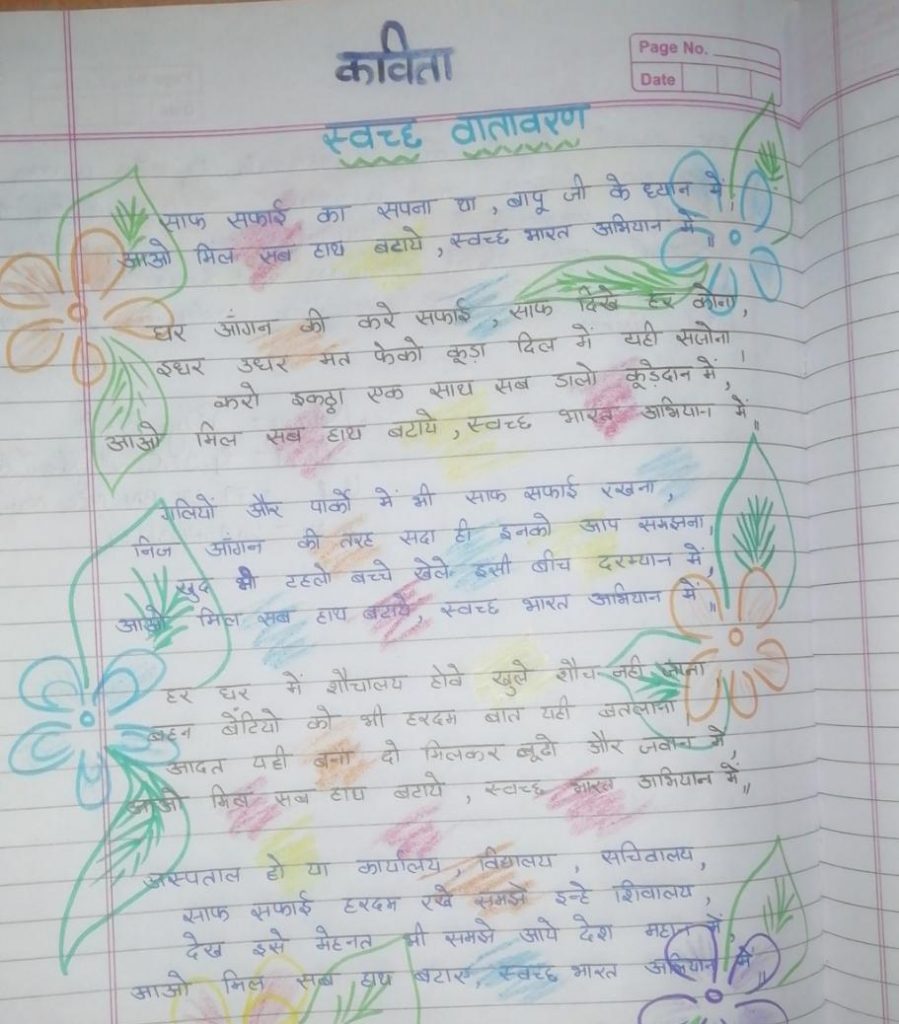 कविता
Page No.
Date
स्वच्छ वातावरण
साफ सफाई का सपना था, बापू जी के ध्यान में,
आओ मिल सब हाथ बटाये, स्वच्छ भारत अभियान में॥
घर आंगन की करे सफाई, साफ दिखे हर कोना,
इधर उधर मत फेको कूड़ा दिल में यही सजोना।
करो इकठ्ठा एक साथ सब डालो कूड़ेदान में,
आओ मिल सब हाथ बटाये, स्वच्छ भारत अभियान में॥
गलियों और पार्को में भी साफ सफाई रखना,
निज आंगन की तरह सदा ही इनको आप समझना,
खुद भी टहलो बच्चे खेले इसी बीच दरम्यान में,
आओ मिल सब हाथ बटाये, स्वच्छ भारत अभियान में॥
हर घर में शौचालय होवे खुले शौच नही जाना
बहन बेंटियो को भी हरदम बात यही बतलाना
आदत यही बना दो मिलकर बूढो और जवान में,
आओ मिल सब हाथ बटाये, स्वच्छ भारत अभियान में॥
अस्पताल हो या कार्यालय, विद्यालय, सचिवालय,
साफ सफाई हरदम रखे समझे इन्हे शिवालय,
देख इसे मेहनत भी समझे आये देश महान में,
आओ मिल सब हाथ बटाए, स्वच्छ भारत अभियान में॥